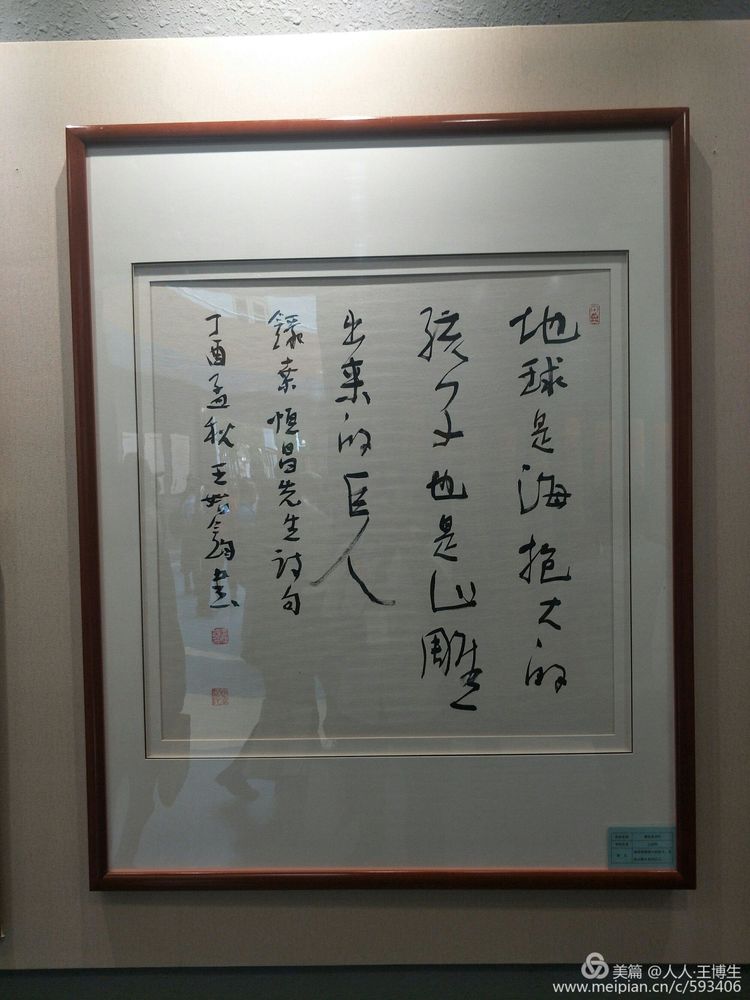 地球是海抱大的
孩子也是山雕
出来的巨人
錄桑恒昌先生詩句
丁酉孟秋王書
美篇 @人人·王博生
www.meipian.cn/c/593406